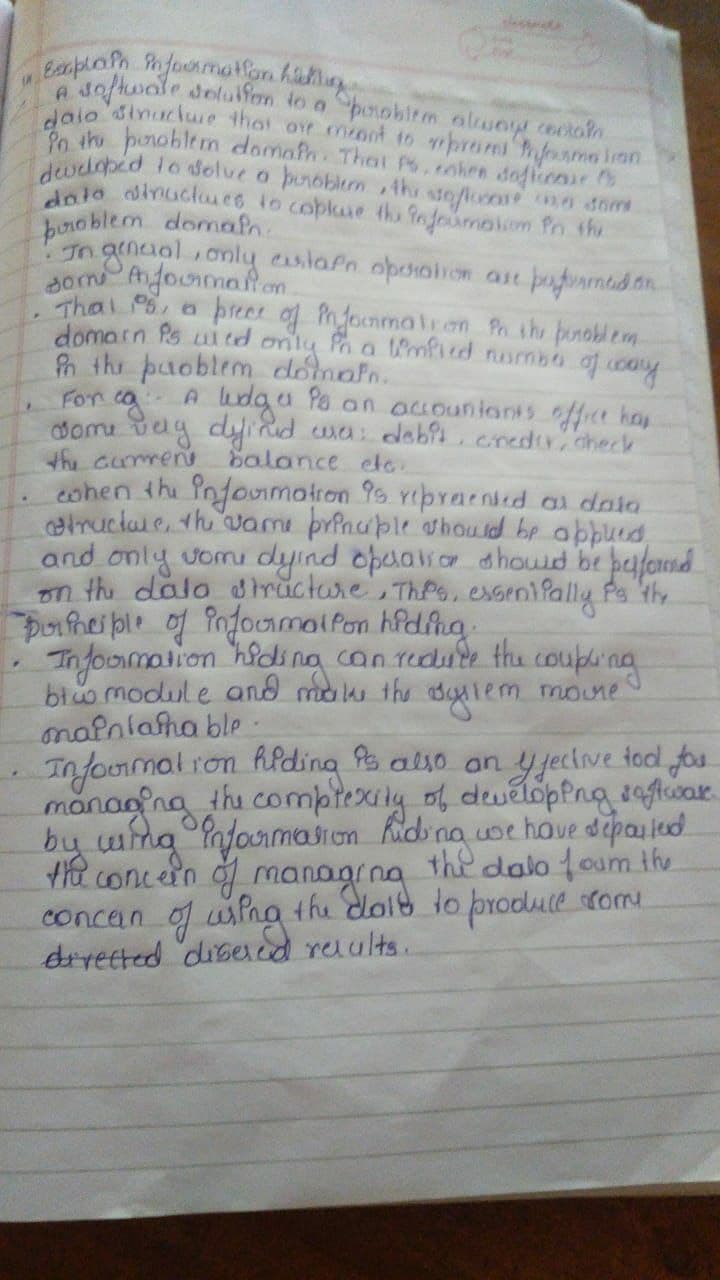 Explain Information hiding.
A software solution to a problem always contain
data structure that are meant to represent Information
In the problem domain. That is, when software is
developed to solve a problem, the software uses some
data structures to capture the Information in the
problem domain.
. In general, only certain operation are performed on
some Information.
. That is, a piece of Information in the problem
domain is used only in a limited number of way
in the problem domain.
. For eg :- A ledger is an accountants office has
some very defined uses: debit, credit, check
the current balance etc.
. when the Information is represented as data
structure, the same principle should be applied,
and only some defined operation should be performed
on the data structure, This, essentially is the
principle of information hiding.
. Information hiding can reduce the coupling
btw module and make the system more
maintainable.
. Information Hiding is also an effective tool for
managing the complexity of developing software.
by using Information hiding we have separated
the concern of managing the data from the
concern of using the data to produce some
desired results.